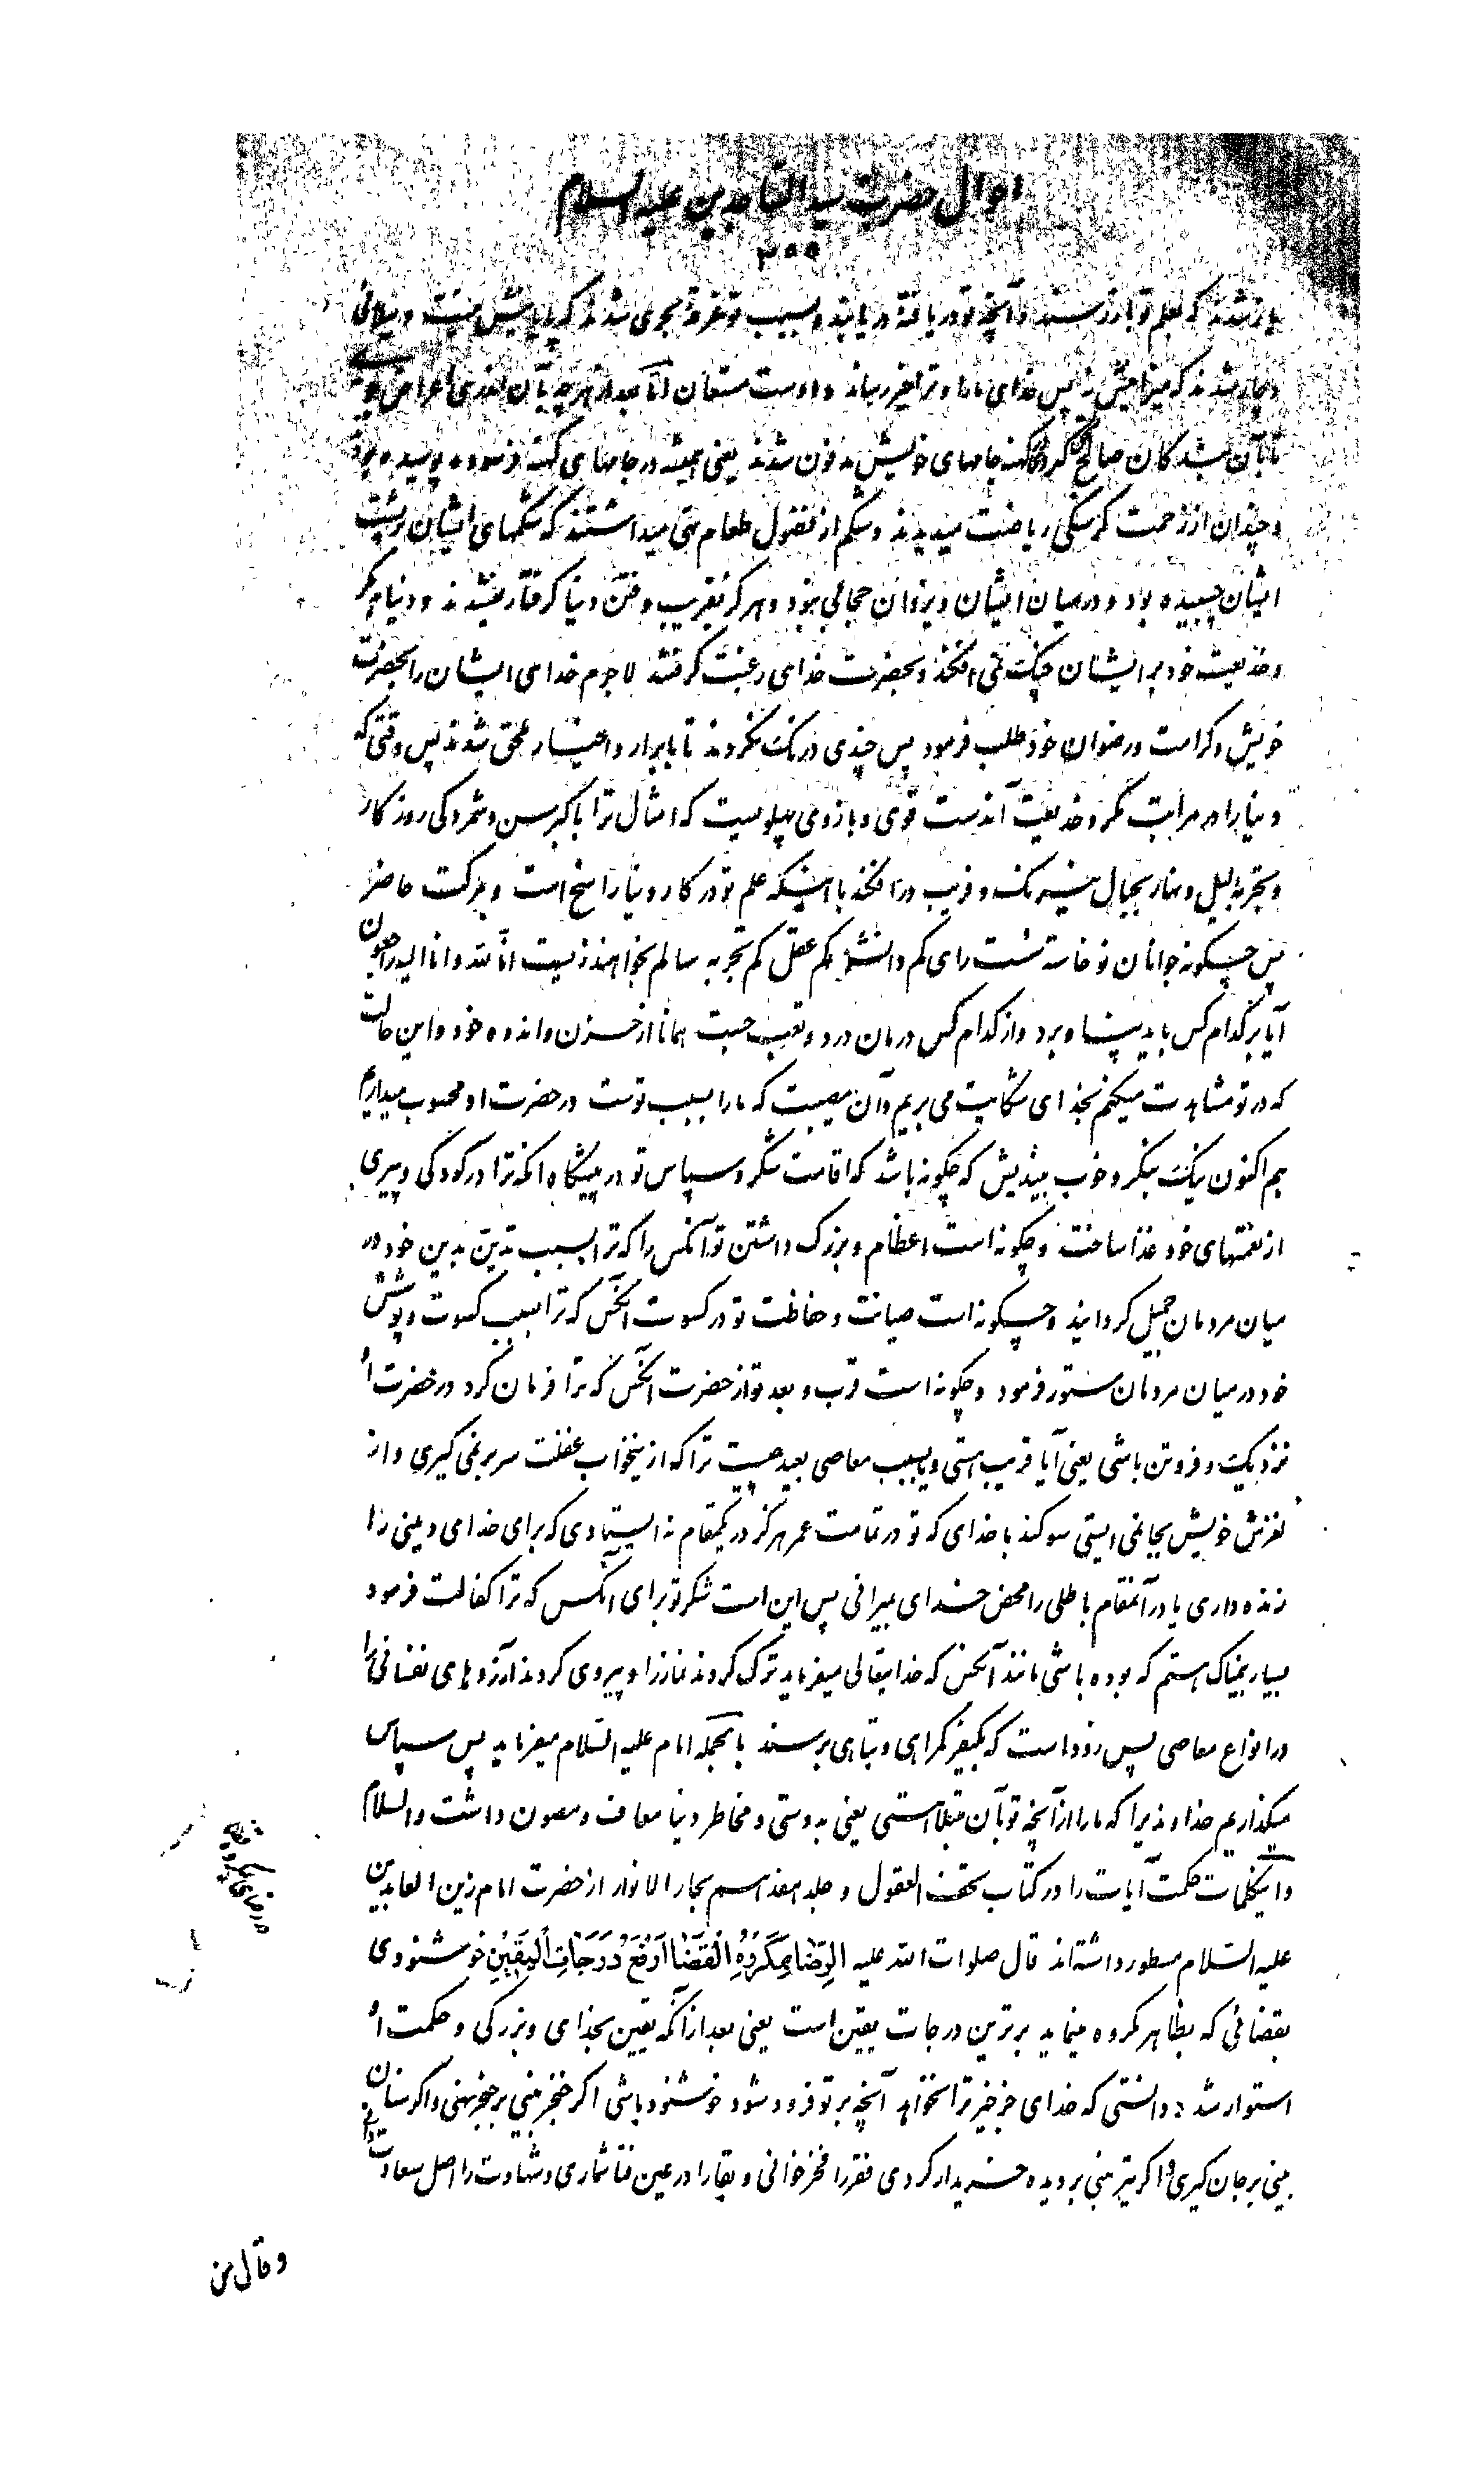 احوال حضرت سید الساجدین علیه السلام
۳۵۵
شدند که بعلم تو باز رسند و آنچه تو دریافته دریابند و بسبب تو غرقهٔ بحری شدند که پایابش نیست و ببلائی
دچار شدند که میزانیش نه پس خدای ما را و ترا خیر رساند و اوست مستعان اما بعد از هرچه بآن اندری اعراض جوی
تا بآن بندگان صالح که در کهنه جامهای خویش مدفون شدند یعنی همیشه در جامهای کهنه فرسوده پوسیده بودند
و چندان از زحمت گرسنگی ریاضت میدیدند و شکم از فضول طعام تهی میداشتند که شکمهای ایشان بر پشت
ایشان چسبیده بود و در میان ایشان و یزدان حجابی نبود و هرگز بفریب و فتن دنیا گرفتار نمیشدند و دنیا بمکر
و خدیعت خود بر ایشان چنگ نمی افکند و بحضرت خدای رغبت گرفتند لاجرم خدای ایشان را بحضرت
خویش و کرامت و رضوان خود طلب فرمود پس چندی درنگ نکردند تا بابرار و اخیار ملحق شدند پس وقتی که
دنیا را در مراتب مکر و خدیعت آندست قوی و بازوی پهلویست که امثال ترا با کبر سن و شمردگی روزگار
و تجربه لیل و نهار بحبال نیرنگ و فریب در افکند با اینکه علم تو در کار دنیا راسخ است و مرگت حاضر
پس چگونه جوانان نوخاسته سست رای کم دانش کم عقل کم تجربه سالم بخواهند زیست انا لله و انا الیه راجعون
آیا بر کدام کس باید پناه برد و از کدام کس درمان درد و تعب جست همانا از حزن و اندوه خود و این حالت
که در تو مشاهدت میکنم بخدای شکایت می بریم و آن مصیبت که ما را بسبب توست در حضرت او محسوب میداریم
هم اکنون نیک بنگر و خوب بیندیش که چگونه باشد که اقامت شکر و سپاس تو در پیشگاه آنکه ترا در کودکی و پیری
از نعمتهای خود غذا ساخت و چگونه است اعظام و بزرگ داشتن تو آنکس را که ترا بسبب تدین بدین خود در
میان مردمان جمیل گردانید و چگونه است صیانت و حفاظت تو در کسوت آنکس که ترا بسبب کسوت و پوشش
خود در میان مردمان مستور فرمود و چگونه است قرب و بعد تو از حضرت آنکس که ترا فرمان کرد در حضرت او
نزدیک و فروتن باشی یعنی آیا قریب هستی و یا بسبب معاصی بعید چیست ترا که ازینخواب غفلت سر بر نمی گیری و از
لغزش خویش بجا نمی ایستی سوگند با خدای که تو در تمامت عمر هرگز در یکمقام نه ایستادی که برای خدای دینی را
زنده داری یا در آنمقام باطلی را محض خدای بمیرانی پس این است شکر تو برای آنکس که ترا کفالت فرمود
بسیار بیمناک هستم که بوده باشی مانند آنکس که خدایتعالی میفرماید ترک کردند نماز را و پیروی کردند آرزوهای نفسانی را
در انواع معاصی پس زود است که بکیفر گمراهی و تباهی برسند بالجمله امام علیه السلام میفرماید پس سپاس
میگذاریم خداوندیرا که ما را از آنچه تو بآن مبتلا هستی یعنی بدوستی و مخاطر دنیا معاف و مصون داشت والسلام
و اینکلمات حکمت آیات را در کتاب تحف العقول و جلد هفدهم بحار الانوار از حضرت امام زین العابدین
علیه السلام مسطور داشته‌اند قال صلوات الله علیه الرِّضَا بِمَكْرُوهِ الْقَضَا اَرْفَعُ دَرَجَاتِ الْيَقِينِ خوشنودی
بقضائی که بظاهر مکروه مینماید برترین درجات یقین است یعنی بعد از آنکه یقین بخدای و بزرگی و حکمت او
استوار شد و دانستی که خدای جز خیر ترا نخواهد آنچه بر تو فرود شود خوشنود باشی اگر خنجر بینی بر حنجر نهی و اگر سنان
بینی بر جان گیری و اگر تیر بینی بر دیده خریدار گردی فقر را فخر خوانی و بقا را در عین فنا شماری و شهادت را اصل سعادت دانی
در رضای بمکروه قضا
و قال من